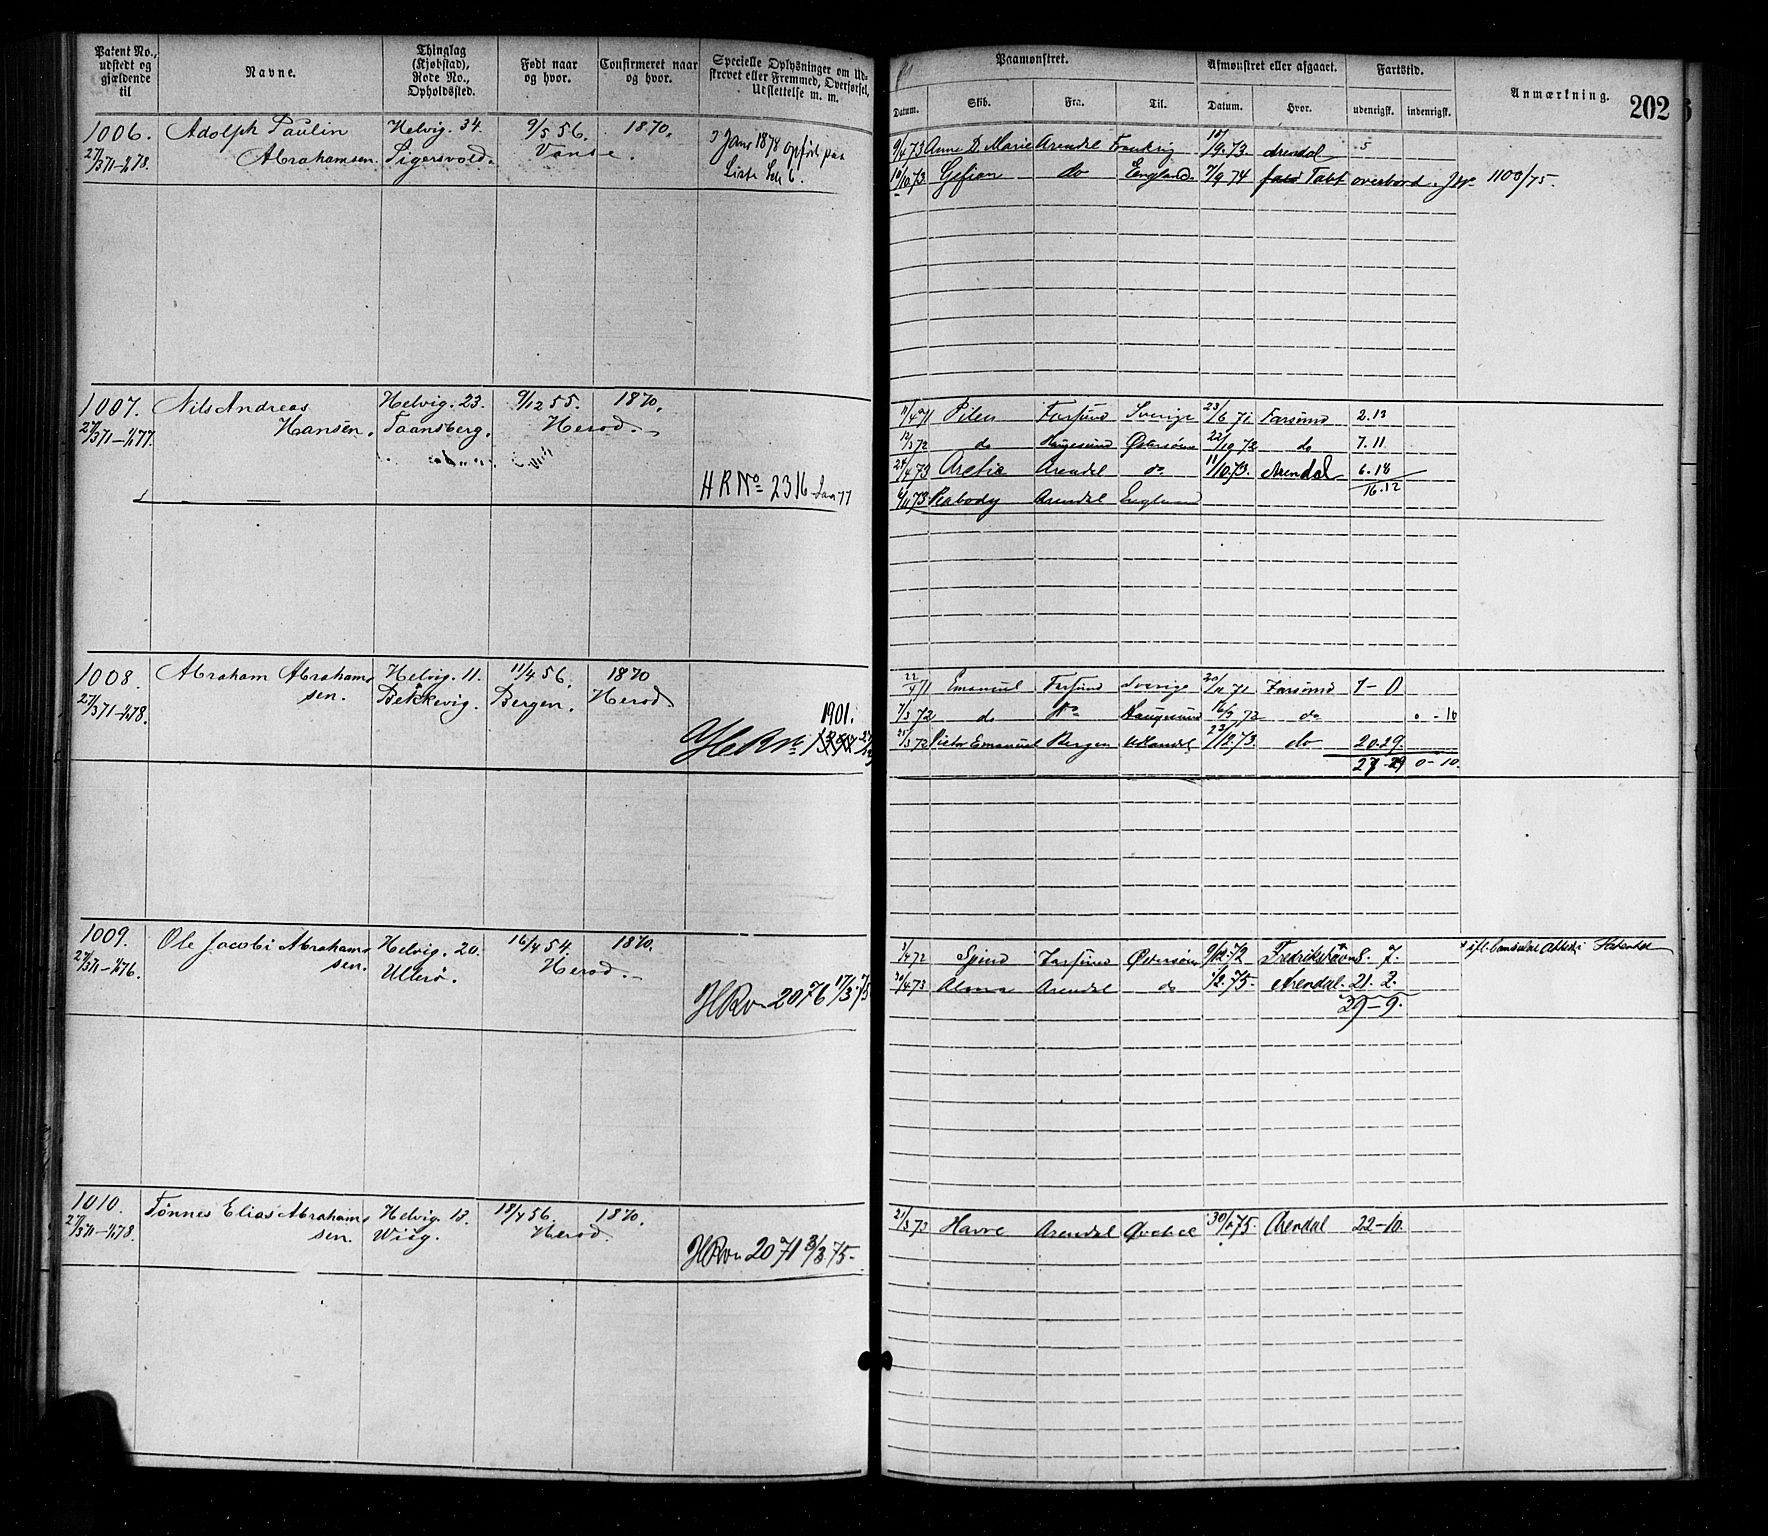 Patent No., udstedt og gjældende til
Navne.
Thinglag (Kjøbstad), Rode No., Opholdssted.
Født naar og hvor.
Confirmeret naar og hvor.
Specielle Oplysninger om Udskrevet eller Fremmed, Overførsel, Udslettelse m. m.
Paamønstret.
Afmønstret eller afgaaet.
Fartstid.
Anmærkning.
202
Datum. Skib. Fra. Til. Datum. Hvor. udenrigsk. indenrigsk.
1006. Adolph Paulin Helvig. 34. 9/5 56. 1870.
27/3 71-1/1 78. Abrahamsen. Sigersvold. Vanse.
3 Jan 1878 opført paa
Liste
9/4 73 Anne D. Marie Arendal Frankrig 18/9.73 Arendal 5
10/10.73. Gefian do England. 7/9 74 Tabt overbord. Jr. 1100/75.
1007. Nils Andreas Helvig. 23. 9/12 55. 1870.
27/3 71-1/1 77. Hansen. Taansberg. Herod.
HR No 2316 Jan 77
11/4 71 Pilen Farsund Sverige 23/6 71 Farsund 2.13
12/3 72 do Haugesund Østersøen 22/10 72 do 7.11
24/4 73 Arctic Arendal do 11/10 73. Arendal 6.18
16.12
6/11 73 Peabody Arendal England
1008. Abraham Abraham- Helvig. 11. 11/4 56. 1870
27/3 71-1/1 78. sen. Bekkevig. Bergen. Herod
1901.
HR No
22/4 71 Emanuel Farsund Sverige 20/11 71 Farsund 7-0
7/3 72 do do Haugesund 16/3 72 do 0-10
25/3 72 Pieter Emanuel Bergen 23/12.73. do 20.29.
27-29 0-10.
1009. Ole Jacobi Abraham- Helvig. 20. 16/4 54. 1870.
27/3 71-1/1 76. sen. Ullerø. Herod.
HR No 2076 17/3 75
3/4 72 Spind Farsund Østersøen 9/12.72 Fredrikshavn 8. 7.
30/4 73 Alma Arendal do 1/2.75. Arendal. 21. 2.
29-9.
1010. Tønnes Elias Abraham- Helvig. 13. 18/4 56. 1870.
27/3 71-1/1 78. sen. Wiig. Herod.
HR No 2071 3/3 75.
21/3 73 Havre Arendal Qvebec 30/1 75. Arendal 22-10.